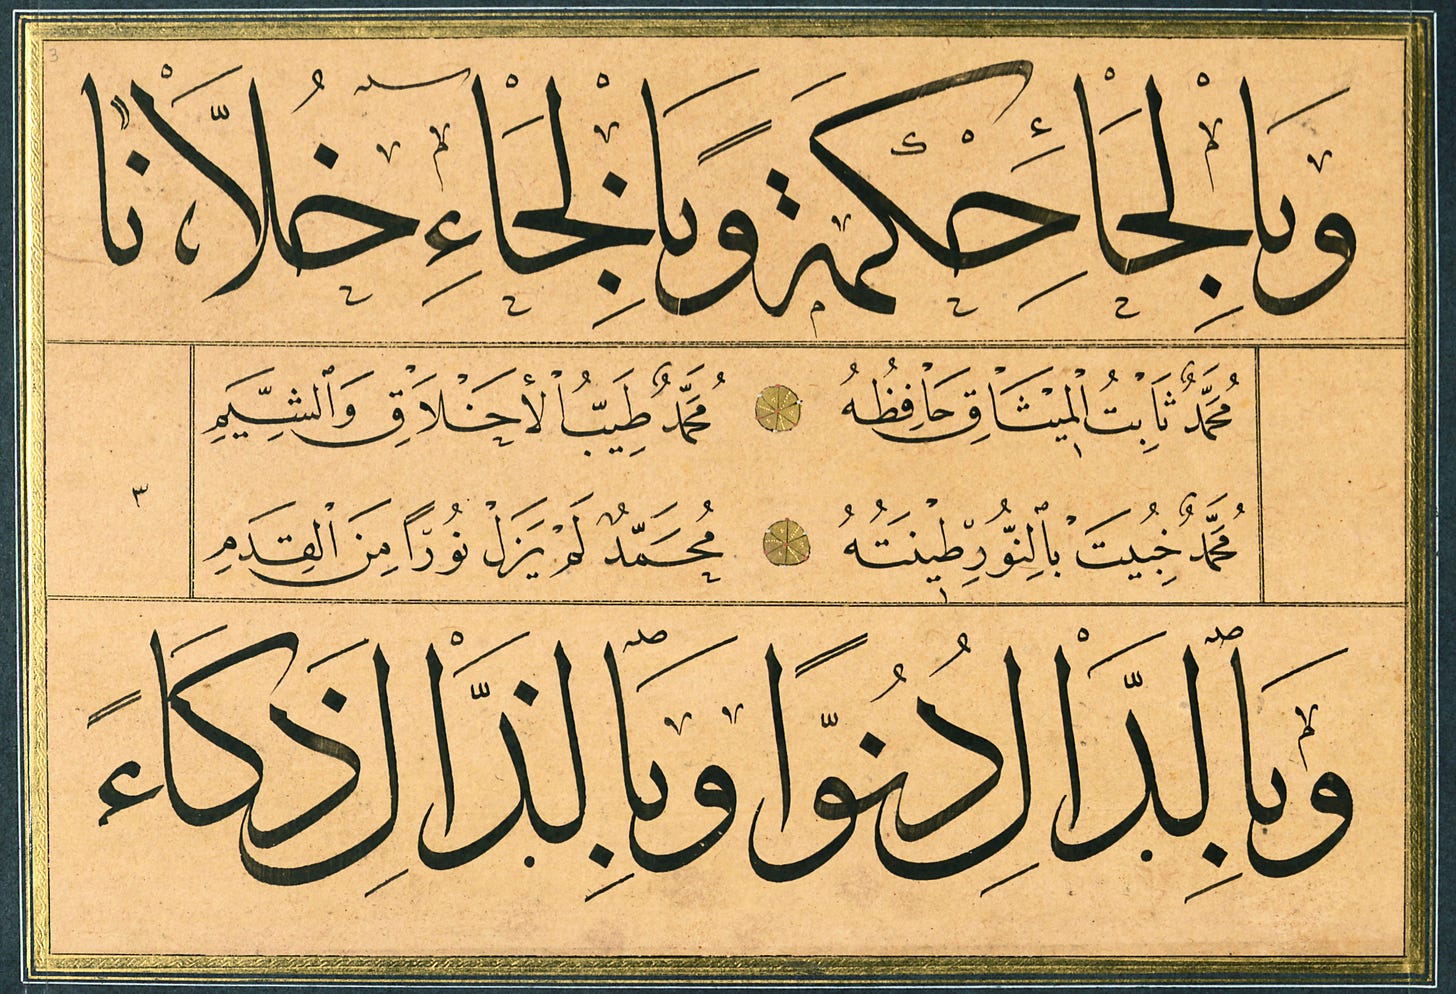 3
وَبِالْحَاءِ حِكْمَةً وَبِالْخَاءِ خُلَّانًا
مُحَمَّدٌ ثَابِتُ الْمِيْثَاقِ حَافِظُهُ مُحَمَّدٌ طَيِّبُ الْأَخْلَاقِ وَالشِّيَمِ
٣
مُحَمَّدٌ خُبِيَتْ بِالنُّورِ طِينَتُهُ مُحَمَّدٌ لَمْ يَزَلْ نُورًا مِنَ الْقِدَمِ
وَبِالدَّالِ دُنُوًّا وَبِالذَّالِ ذَكَاءً